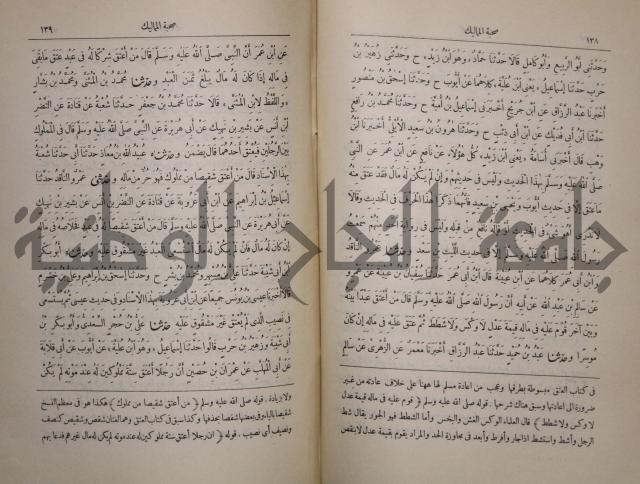 ١٣٨
صحبة المماليك
وحدثني أبو الربيع وأبو كامل قالا حدثنا حماد، وهو ابن زيد، ح وحدثني زهير بن
حرب حدثنا إسماعيل، يعني ابن علية، كلاهما عن أيوب ح وحدثنا إسحق بن منصور
أخبرنا عبد الرزاق عن ابن جريج أخبرني إسماعيل بن أمية ح وحدثنا محمد بن رافع
حدثنا ابن أبي فديك عن ابن أبي ذئب ح وحدثنا هرون بن سعيد الأيلي أخبرنا ابن
وهب قال أخبرني أسامة، يعني ابن زيد، كل هؤلاء، عن نافع عن ابن عمر عن النبي
صلى الله عليه وسلم بهذا الحديث وليس في حديثهم وإن لم يكن له مال فقد عتق منه
ما عتق إلا في حديث أيوب ويحيى بن سعيد فإنهما ذكرا هذا الحرف في الحديث وقالا
لا ندري أهو شيء في الحديث أو قاله نافع من قبله وليس في رواية أحد منهم سمعت
رسول الله صلى الله عليه وسلم إلا في حديث الليث بن سعد وحدثنا عمرو الناقد
وابن أبي عمر كلاهما عن ابن عيينة قال ابن أبي عمر حدثنا سفيان بن عيينة عن عمرو
عن سالم بن عبد الله عن أبيه أن رسول الله صلى الله عليه وسلم قال من أعتق عبدا بينه
وبين آخر قوم عليه في ماله قيمة عدل لا وكس ولا شطط ثم عتق عليه في ماله إن كان
موسرا وحدثنا عبد بن حميد حدثنا عبد الرزاق أخبرنا معمر عن الزهري عن سالم
في كتاب العتق مبسوطة بطرقها وعجب من اعادة مسلم لها ههنا على خلاف عادته من غير
ضرورة الى اعادتها وسبق هناك شرحها. قوله صلى الله عليه وسلم ﴿قوم عليه في ماله قيمة عدل
لا وكس ولا شطط﴾ قال العلماء الوكس الغش والبخس وأما الشطط فهو الجور يقال شط
الرجل وأشط واستشط اذا جار وأفرط وأبعد في مجاوزة الحد والمراد يقوم بقيمة عدل لا بنقص
صحبة المماليك
١٣٩
عن ابن عمر أن النبي صلى الله عليه وسلم قال من أعتق شركا له في عبد عتق ما بقي
في ماله إذا كان له مال يبلغ ثمن العبد وحدثنا محمد بن المثنى ومحمد بن بشار
، واللفظ لابن المثنى، قالا حدثنا محمد بن جعفر حدثنا شعبة عن قتادة عن النضر
ابن أنس عن بشير بن نهيك عن أبي هريرة عن النبي صلى الله عليه وسلم قال في المملوك
بين الرجلين فيعتق أحدهما قال يضمن وحدثناه عبيد الله بن معاذ حدثنا أبي حدثنا شعبة
بهذا الإسناد قال من أعتق شقيصا من مملوك فهو حر من ماله وحدثني عمرو الناقد حدثنا
إسماعيل بن إبراهيم عن ابن أبي عروبة عن قتادة عن النضر بن أنس عن بشير بن نهيك
عن أبي هريرة عن النبي صلى الله عليه وسلم قال من أعتق شقيصا له في عبد فخلاصه في ماله
إن كان له مال فان لم يكن له مال استسعي العبد غير مشقوق عليه وحدثناه أبو بكر بن
أبي شيبة حدثنا علي بن مسهر ومحمد بن بشر ح وحدثنا إسحق بن إبراهيم وعلي بن خشرم
قالا أخبرنا عيسى بن يونس جميعا عن ابن أبي عروبة بهذا الاسناد وفي حديث عيسى ثم يستسعى
في نصيب الذي لم يعتق غير مشقوق عليه حدثنا علي بن حجر السعدي وأبو بكر بن
أبي شيبة وزهير بن حرب قالوا حدثنا إسماعيل، وهو ابن علية، عن أيوب عن أبي قلابة
عن أبي المهلب عن عمران بن حصين أن رجلا أعتق ستة مملوكين له عند موته لم يكن
ولا بزيادة. قوله صلى الله عليه وسلم ﴿من أعتق شقيصا من مملوك﴾ هكذا هو في معظم النسخ
شقيصا بالياء وفي بعضها شقصا بحذفها وكذا سبق في كتاب العتق وهما لغتان شقص وشقيص كنصف
ونصيف أي نصيب. قوله ﴿ان رجلا أعتق ستة مملوكين له عند موته لم يكن له مال غيرهم فدعا بهم
جامعة النجاح الوطنية